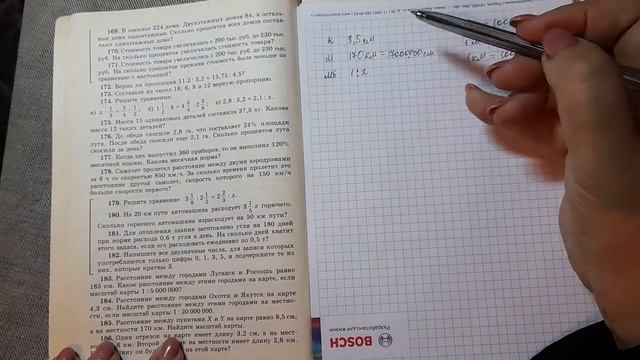 169. В поселке 224 дома. Двухэтажных домов 84, а осталь-
ные дома одноэтажные. Сколько процентов всех домов состав-
ляют одноэтажные дома?
170. Стоимость товара увеличилась с 200 тыс. руб. до 230 тыс.
руб. На сколько процентов увеличилась стоимость товара?
171. Стоимость товара увеличилась с 200 тыс. руб. до 230 тыс.
руб. На сколько процентов прежняя стоимость была меньше по
сравнению с настоящей?
172. Верна ли пропорция 11,2 : 3,2 = 15,75 : 4,5?
173. Составьте из чисел 16, 6, 8 и 12 верную пропорцию.
174. Решите уравнение:
175. Масса 15 одинаковых деталей составила 37,5 кг. Какова
масса 12 таких деталей?
176. До обеда скосили 2,8 га, что составляет 24% площади
луга. После обеда скосили еще 2,1 га. Сколько процентов луга
скосили за день?
177. Когда цех выпустил 360 приборов, то он выполнил 120%
месячной нормы. Какова месячная норма?
178. Самолет пролетел расстояние между двумя аэродромами
за 6 ч со скоростью 850 км/ч. За сколько времени пролетит это
расстояние другой самолет, скорость которого на 150 км/ч
больше скорости первого?
179. Решите уравнение 3 1/8 : 2 1/2 = 2 2/3 : x.
180. На 20 км пути автомашина расходует 3 1/5 л горючего.
Сколько горючего автомашина израсходует на 50 км пути?
181. Для отопления здания заготовлено угля на 180 дней
при норме расхода 0,6 т угля в день. На сколько дней хватит
этого запаса, если его расходовать ежедневно по 0,5 т?
182. Напишите все двузначные числа, для записи которых
употребляются только цифры 0, 1, 3, 5, и подчеркните те из
них, которые кратны 3.
183. Расстояние между городами Луганск и Россошь равно
185 км. Какое расстояние между этими городами на карте, если
масштаб карты 1 : 5 000 000?
184. Расстояние между городами Охотск и Якутск на карте
4,3 см. Найдите расстояние между этими городами на местно-
сти, если масштаб карты 1 : 20 000 000.
185. Расстояние между пунктами X и Y на карте равно 8,5 см,
а на местности 170 км. Найдите масштаб карты.
186. Один отрезок на карте имеет длину 3,2 см, а на мест-
на местности имеет длину 2,8 км.
на этой карте?
К 8,5 см
М 170 км =
МБ 1 : x
BOSCH
Разработано для жизни